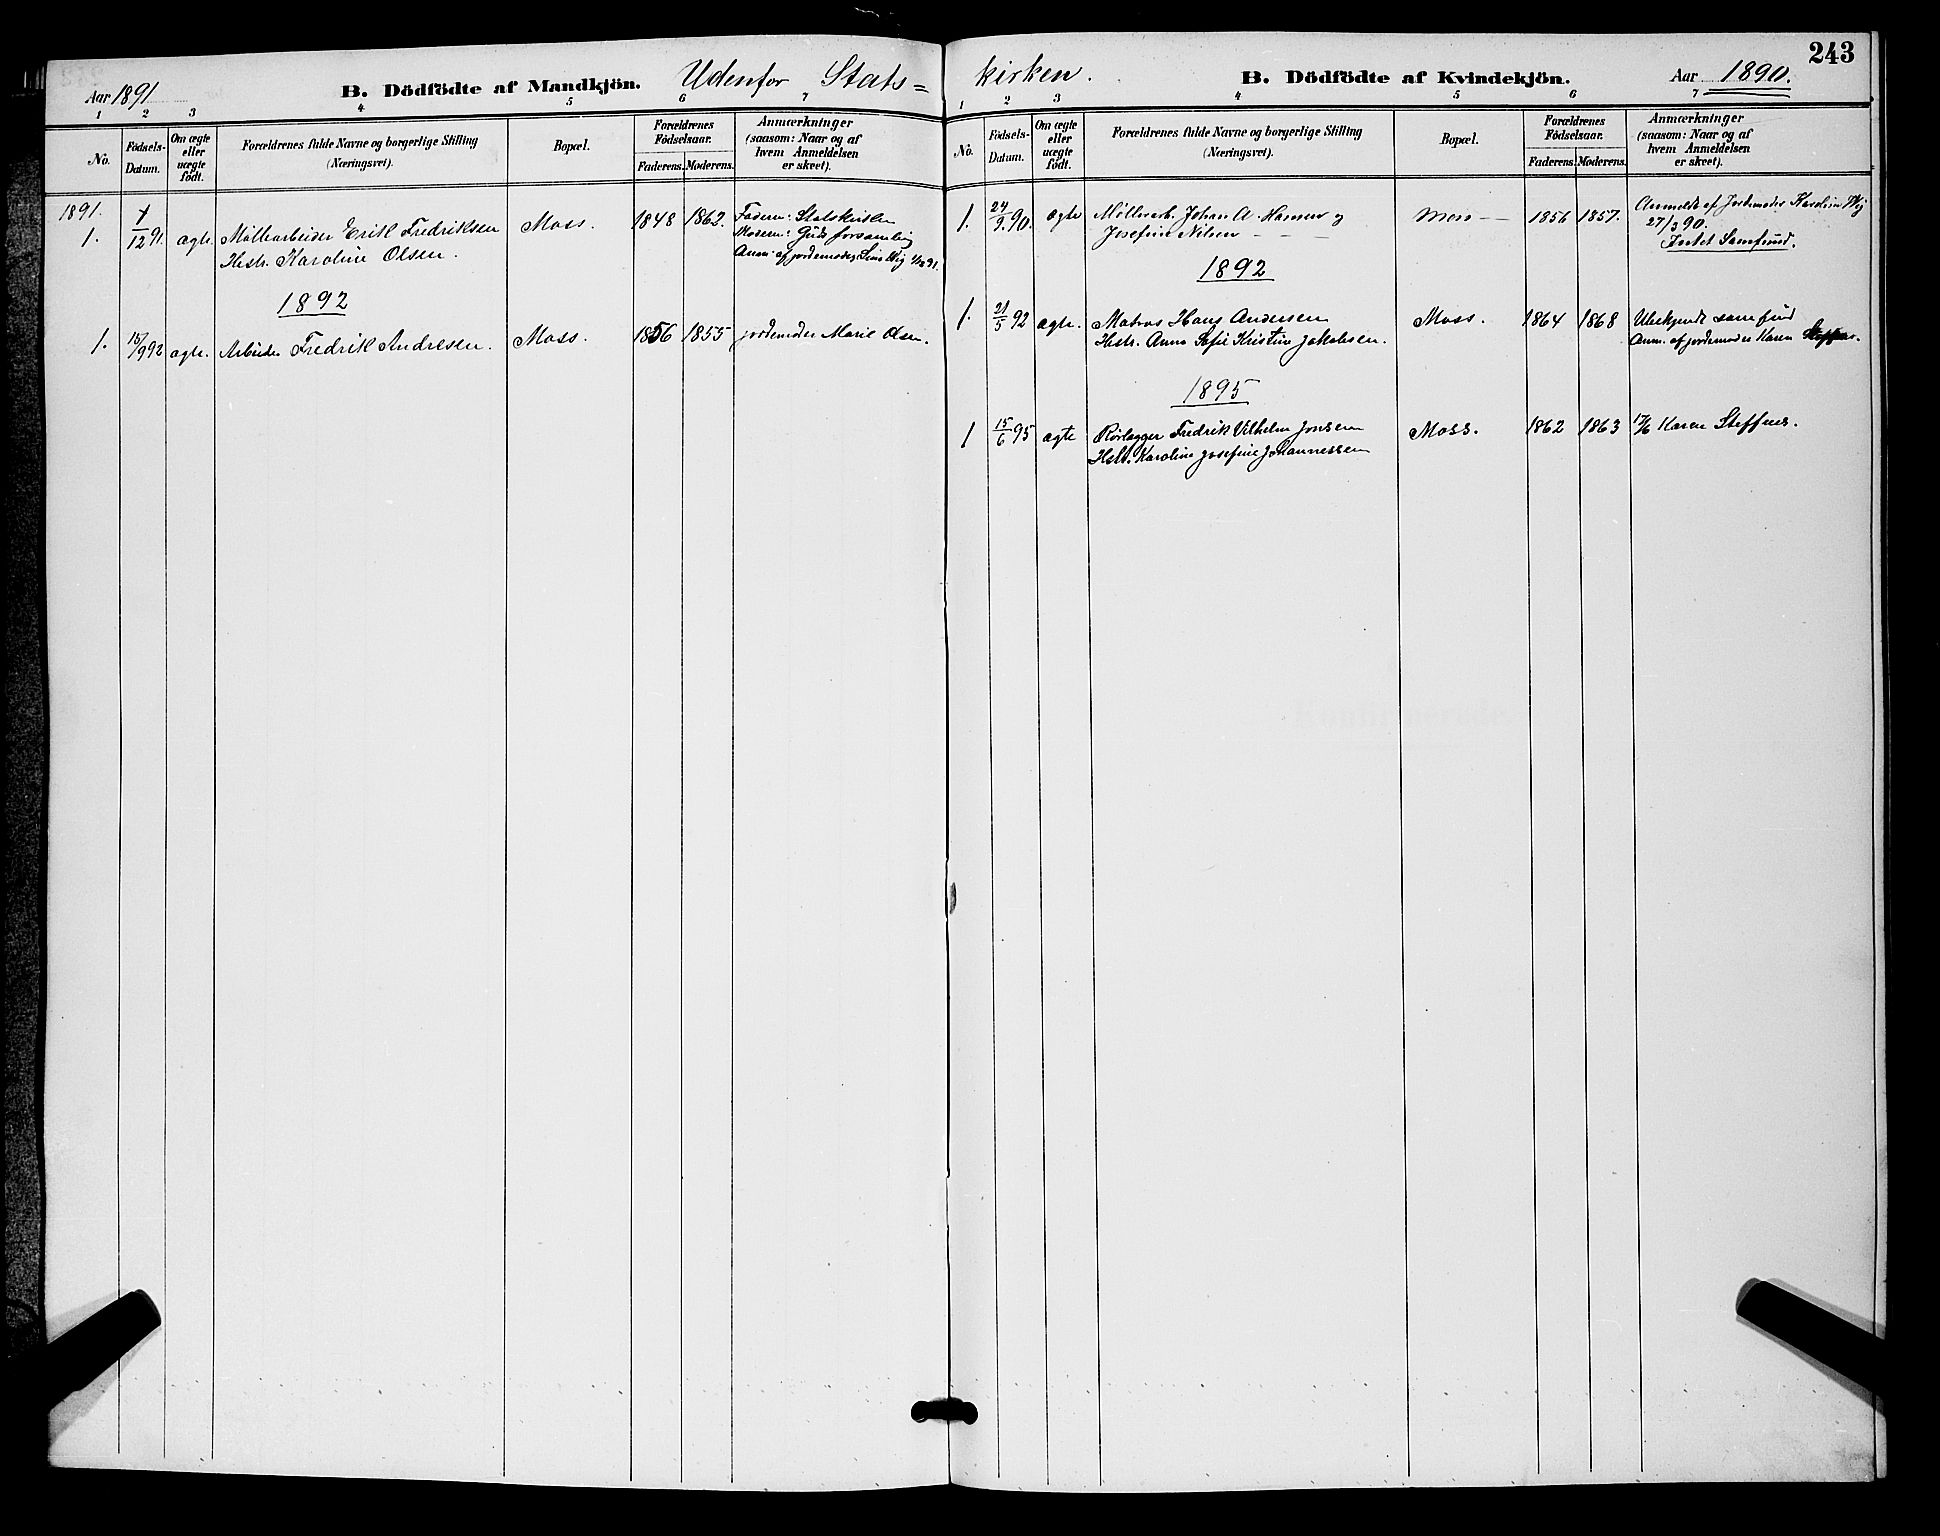 Aar 1891
B. Dödfödte af Mandkjön.
Udenfor Stats=
1 2 3 4 5 6 7
No.
Födsels-Datum.
Om ægte eller uægte födt.
Forældrenes fulde Navne og borgerlige Stilling
(Næringsvei).
Bopæl.
Forældrenes Födselsaar.
Faderens. Moderens.
Anmærkninger
(saasom: Naar og af
hvem Anmeldelsen
er skeet).
1891.
1. 1/12 91. ægte. Møllearbeider Erik Fredriksen Moss. 1848 1862. Faderen: Statskirken
Hustr. Karoline Olsen. Moderen: Guds forsamling
Anm. af jordemoder Wig 1/12 91.
1892
1. 15/9 92 ægte. Arbeider Fredrik Andresen. Moss. 1856 1855 jordemoder Marie Olsen.
kirken.
B. Dödfödte af Kvindekjön.
Aar 1890.
243
1 2 3 4 5 6 7
No.
Födsels-Datum.
Om ægte eller uægte födt.
Forældrenes fulde Navne og borgerlige Stilling
(Næringsvei).
Bopæl.
Forældrenes Födselsaar.
Faderens. Moderens.
Anmærkninger
(saasom: Naar og af
hvem Anmeldelsen
er skeet).
1. 24/9. 90. ægte Møllerarb. Johan A. Hansen og Moss — 1856 1857. Anmeldt af Jordemoder Karoline Wig
Josefine Nilsen — — — 27/3 90.
Intet Samfund.
1892
1. 21/5 92 ægte. Matros Hans Andersen Moss. 1864 1868 Ubekjendt samfund
Hstr. Anna Sofie Kristine Jakobsen. Anm. af jordemoder Karen Steffens.
1895
1 15/6 95 ægte Rørlægger Fredrik Vilhelm Jonsen Moss. 1862 1863 17/6 Karen Steffens.
Hstr. Karoline Josefine Johannessen